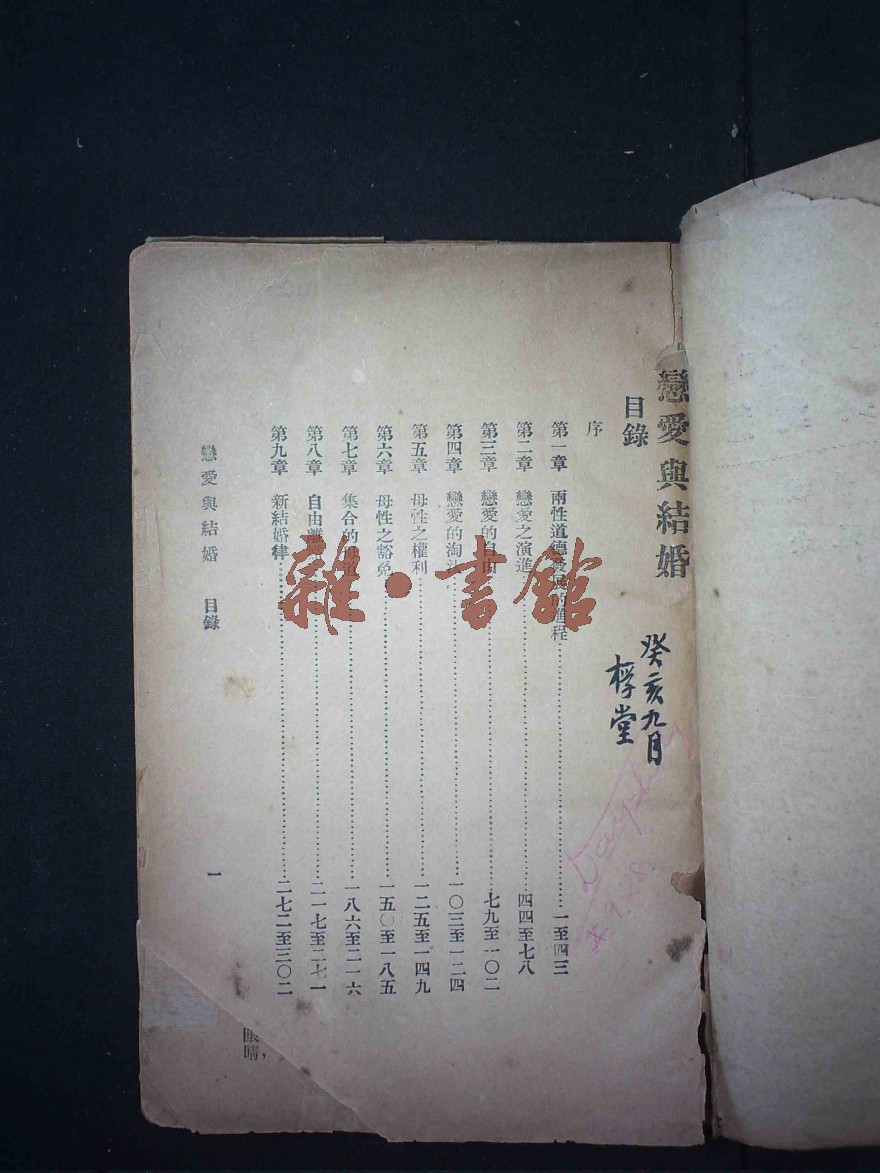 戀愛與結婚
目錄
序
第一章 兩性道德發展的進程……一至四三
第二章 戀愛之演進……四四至七八
第三章 戀愛的自由……七九至一〇二
第四章 戀愛的淘汰……一〇三至一二四
第五章 母性之權利……一二五至一四九
第六章 母性之豁免……一五〇至一八五
第七章 集合的母道……一八六至二一六
第八章 自由離婚……二一七至二七一
第九章 新結婚律……二七二至三〇二
戀愛與結婚 目錄 一
癸亥九月
桴堂
雜·書館
眼睛,